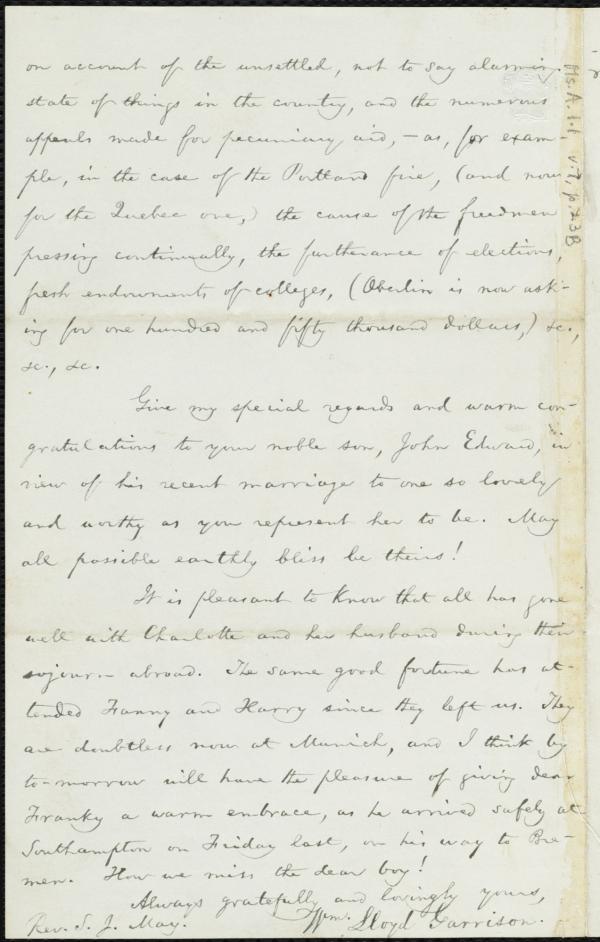 on account of the unsettled, not to say alarming
state of things in the country, and the numerous
appeals made for pecuniary aid, — as, for exam-
ple, in the case of the Portland fire, (and now
for the Quebec one,) the cause of the freedmen
pressing continually, the furtherance of elections,
fresh endowments of colleges, (Oberlin is now ask-
ing for one hundred and fifty thousand dollars,) &c.,
&c., &c.
Give my special regards and warm con-
gratulations to your noble son, John Edward, in
view of his recent marriage to one so lovely
and worthy as you represent her to be. May
all possible earthly bliss be theirs!
It is pleasant to know that all has gone
well with Charlotte and her husband during their
sojourn abroad. The same good fortune has at-
tended Fanny and Harry since they left us. They
are doubtless now at Munich, and I think by
to-morrow will have the pleasure of giving dear
Franky a warm embrace, as he arrived safely at
Southampton on Friday last, on his way to Bre-
men. How we miss the dear boy!
Always gratefully and lovingly yours,
Rev. S. J. May. Wm. Lloyd Garrison.
Ms. A. 1.1, v. 7, p. 23B